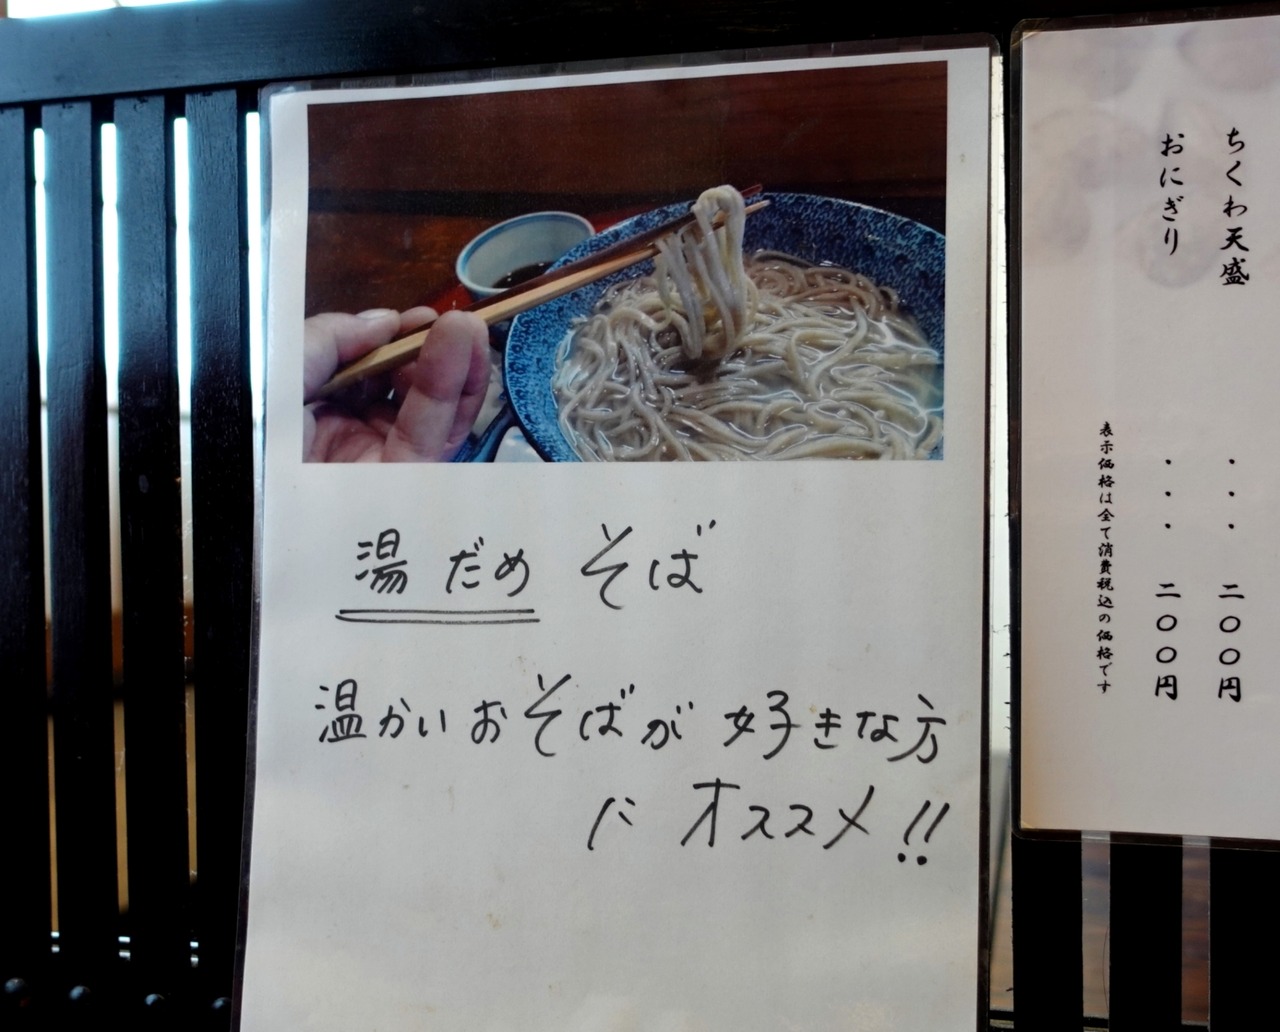 湯だめそば
温かいおそばが好きな方
にオススメ!!
ちくわ天盛・・・二〇〇円
おにぎり・・・二〇〇円
表示価格は全て消費税込の価格です